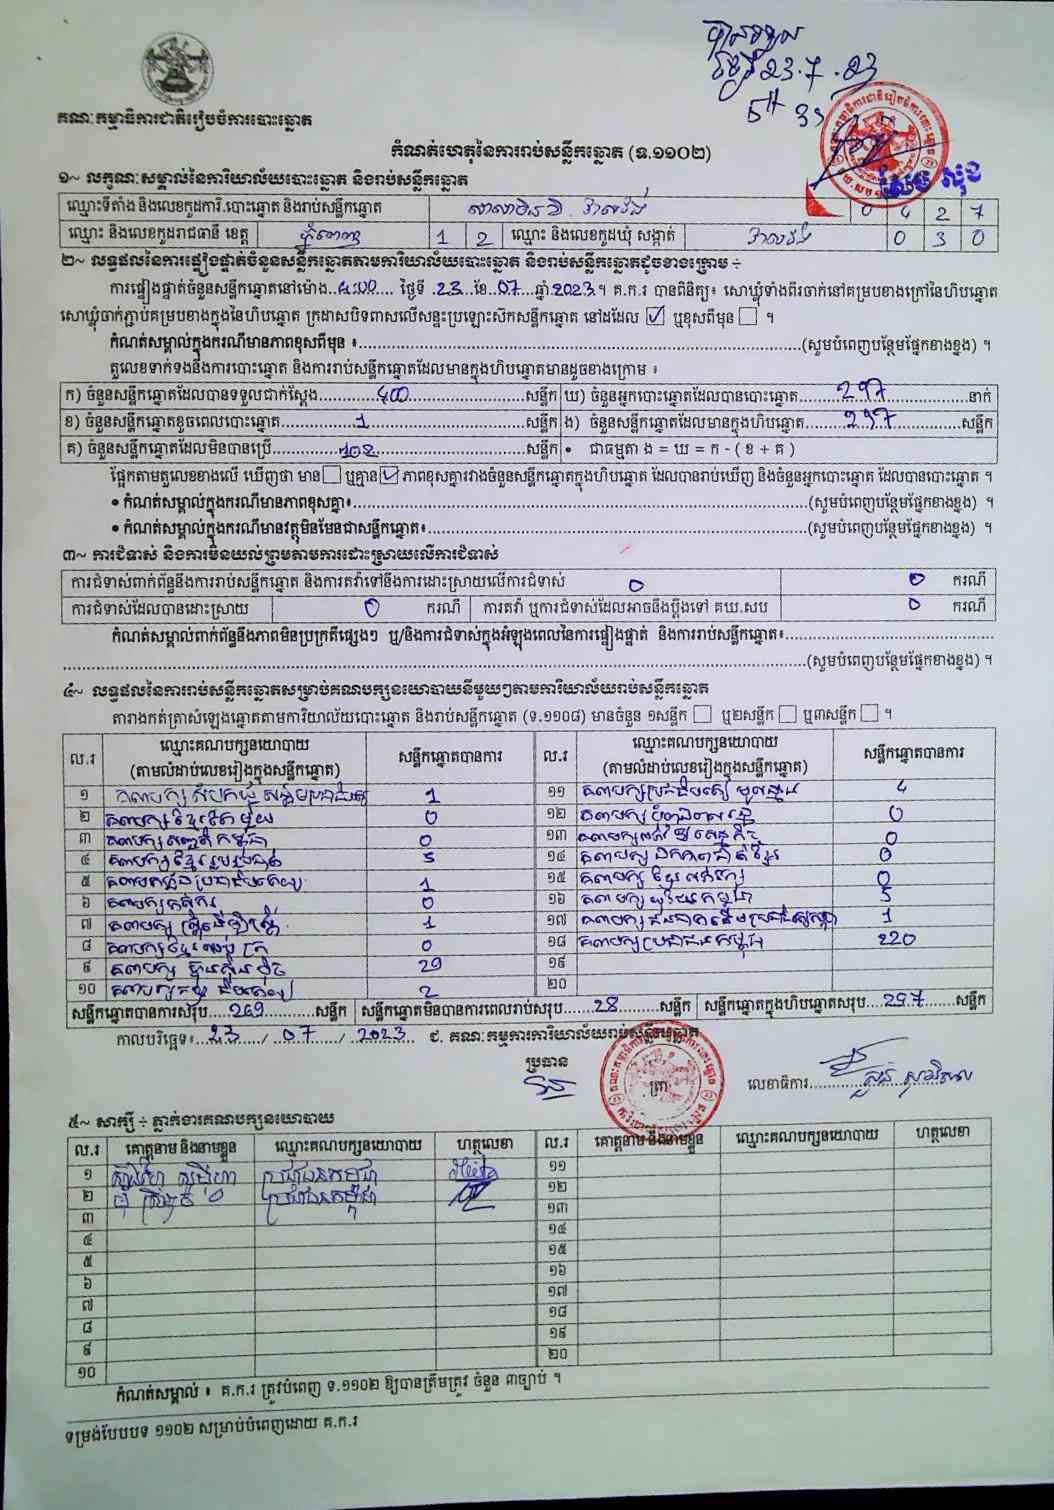 បានទទួល
ថ្ងៃទី 23.7.23
គណៈកម្មាធិការជាតិរៀបចំការបោះឆ្នោត
កំណត់ហេតុនៃការរាប់សន្លឹកឆ្នោត (ទ.១១០២)
១~ លក្ខណៈសម្គាល់នៃការិយាល័យបោះឆ្នោត និងរាប់សន្លឹកឆ្នោត
ឈ្មោះទីតាំង និងលេខកូដការិ.បោះឆ្នោត និងរាប់សន្លឹកឆ្នោត 0 4 2 7
ឈ្មោះ និងលេខកូដរាជធានី ខេត្ត ភ្នំពេញ 1 2 ឈ្មោះ និងលេខកូដឃុំ សង្កាត់ វាលវង់ 0 3 0
២~ លទ្ធផលនៃការផ្ទៀងផ្ទាត់ចំនួនសន្លឹកឆ្នោតតាមការិយាល័យបោះឆ្នោត និងរាប់សន្លឹកឆ្នោតដូចខាងក្រោម ÷
ការផ្ទៀងផ្ទាត់ចំនួនសន្លឹកឆ្នោតនៅម៉ោង..4:00.... ថ្ងៃទី .23..ខែ.07..ឆ្នាំ.2023.។ គ.ក.រ បានពិនិត្យ៖ សោឃ្លុំទាំងពីរចាក់នៅគម្របខាងក្រៅនៃហិបឆ្នោត
សោឃ្លុំចាក់ភ្ជាប់គម្របខាងក្នុងនៃហិបឆ្នោត ក្រដាសបិទពាសលើសន្ទះប្រឡោះសិកសន្លឹកឆ្នោត នៅដដែល ☑ ឬខុសពីមុន ☐ ។
កំណត់សម្គាល់ក្នុងករណីមានភាពខុសពីមុន ៖..........(សូមបំពេញបន្ថែមផ្នែកខាងខ្នង) ។
តួលេខទាក់ទងនឹងការបោះឆ្នោត និងការរាប់សន្លឹកឆ្នោតដែលមានក្នុងហិបឆ្នោតមានដូចខាងក្រោម ៖
ក) ចំនួនសន្លឹកឆ្នោតដែលបានទទួលជាក់ស្តែង..........400..........សន្លឹក ឃ) ចំនួនអ្នកបោះឆ្នោតដែលបានបោះឆ្នោត..........297..........នាក់
ខ) ចំនួនសន្លឹកឆ្នោតខូចពេលបោះឆ្នោត..........1..........សន្លឹក ង) ចំនួនសន្លឹកឆ្នោតដែលមានក្នុងហិបឆ្នោត..........297..........សន្លឹក
គ) ចំនួនសន្លឹកឆ្នោតដែលមិនបានប្រើ..........102..........សន្លឹក • ជាធម្មតា ង = ឃ = ក - ( ខ + គ )
ផ្អែកតាមតួលេខខាងលើ ឃើញថា មាន ☐ ឬគ្មាន ☑ ភាពខុសគ្នារវាងចំនួនសន្លឹកឆ្នោតក្នុងហិបឆ្នោត ដែលបានរាប់ឃើញ និងចំនួនអ្នកបោះឆ្នោត ដែលបានបោះឆ្នោត ។
• កំណត់សម្គាល់ក្នុងករណីមានភាពខុសគ្នា៖..........(សូមបំពេញបន្ថែមផ្នែកខាងខ្នង) ។
• កំណត់សម្គាល់ក្នុងករណីមានវត្ថុមិនមែនជាសន្លឹកឆ្នោត៖..........(សូមបំពេញបន្ថែមផ្នែកខាងខ្នង) ។
៣~ ការជំទាស់ និងការមិនយល់ព្រមតាមការដោះស្រាយលើការជំទាស់
ការជំទាស់ពាក់ព័ន្ធនឹងការរាប់សន្លឹកឆ្នោត និងការតវ៉ាទៅនឹងការដោះស្រាយលើការជំទាស់ 0 0 ករណី
ការជំទាស់ដែលបានដោះស្រាយ 0 ករណី ការតវ៉ា ឬការជំទាស់ដែលអាចនឹងប្តឹងទៅ គឃ.សប 0 ករណី
កំណត់សម្គាល់ពាក់ព័ន្ធនឹងភាពមិនប្រក្រតីផ្សេងៗ ឬ/និងការជំទាស់ក្នុងអំឡុងពេលនៃការផ្ទៀងផ្ទាត់ និងការរាប់សន្លឹកឆ្នោត៖..........
..........(សូមបំពេញបន្ថែមផ្នែកខាងខ្នង) ។
៤~ លទ្ធផលនៃការរាប់សន្លឹកឆ្នោតសម្រាប់គណបក្សនយោបាយនីមួយៗតាមការិយាល័យរាប់សន្លឹកឆ្នោត
តារាងកត់ត្រាសំឡេងឆ្នោតតាមការិយាល័យបោះឆ្នោត និងរាប់សន្លឹកឆ្នោត (ទ.១១០៨) មានចំនួន ១សន្លឹក ☐ ឬ២សន្លឹក ☐ ឬ៣សន្លឹក ☐ ។
ល.រ ឈ្មោះគណបក្សនយោបាយ (តាមលំដាប់លេខរៀងក្នុងសន្លឹកឆ្នោត) សន្លឹកឆ្នោតបានការ ល.រ ឈ្មោះគណបក្សនយោបាយ (តាមលំដាប់លេខរៀងក្នុងសន្លឹកឆ្នោត) សន្លឹកឆ្នោតបានការ
១ 1 ១១ 4
២ គណបក្ស ខ្មែរតែមួយ 0 ១២ 0
៣ គណបក្ស សញ្ជាតិកម្ពុជា 0 ១៣ 0
៤ គណបក្ស ខ្មែររួបរួមជាតិ 5 ១៤ គណបក្ស ឯកភាពជាតិខ្មែរ 0
៥ 1 ១៥ 0
៦ គណបក្សកសិករ 0 ១៦ គណបក្ស យុវជនកម្ពុជា 5
៧ គណបក្ស ស្ត្រីដើម្បីស្ត្រី 1 ១៧ 1
៨ 0 ១៨ គណបក្សប្រជាជនកម្ពុជា 220
៩ គណបក្ស ហ៊្វុនស៊ិនប៉ិច 29 ១៩
១០ 2 ២០
សន្លឹកឆ្នោតបានការសរុប.....269.....សន្លឹក សន្លឹកឆ្នោតមិនបានការពេលរាប់សរុប.....28.....សន្លឹក សន្លឹកឆ្នោតក្នុងហិបឆ្នោតសរុប....297.....សន្លឹក
កាលបរិច្ឆេទ៖..23..../..07..../..2023.... ជ. គណៈកម្មការការិយាល័យរាប់សន្លឹកឆ្នោត
ប្រធាន
លេខាធិការ..........
៥~ សាក្សី ÷ ភ្នាក់ងារគណបក្សនយោបាយ
ល.រ គោត្តនាម និងនាមខ្លួន ឈ្មោះគណបក្សនយោបាយ ហត្ថលេខា ល.រ គោត្តនាម និងនាមខ្លួន ឈ្មោះគណបក្សនយោបាយ ហត្ថលេខា
១ ប្រជាជនកម្ពុជា ១១
២ ប្រជាជនកម្ពុជា ១២
៣ ១៣
៤ ១៤
៥ ១៥
៦ ១៦
៧ ១៧
៨ ១៨
៩ ១៩
១០ ២០
កំណត់សម្គាល់ ៖ គ.ក.រ ត្រូវបំពេញ ទ.១១០២ ឱ្យបានត្រឹមត្រូវ ចំនួន ៣ច្បាប់ ។
ទម្រង់បែបបទ ១១០២ សម្រាប់បំពេញដោយ គ.ក.រ